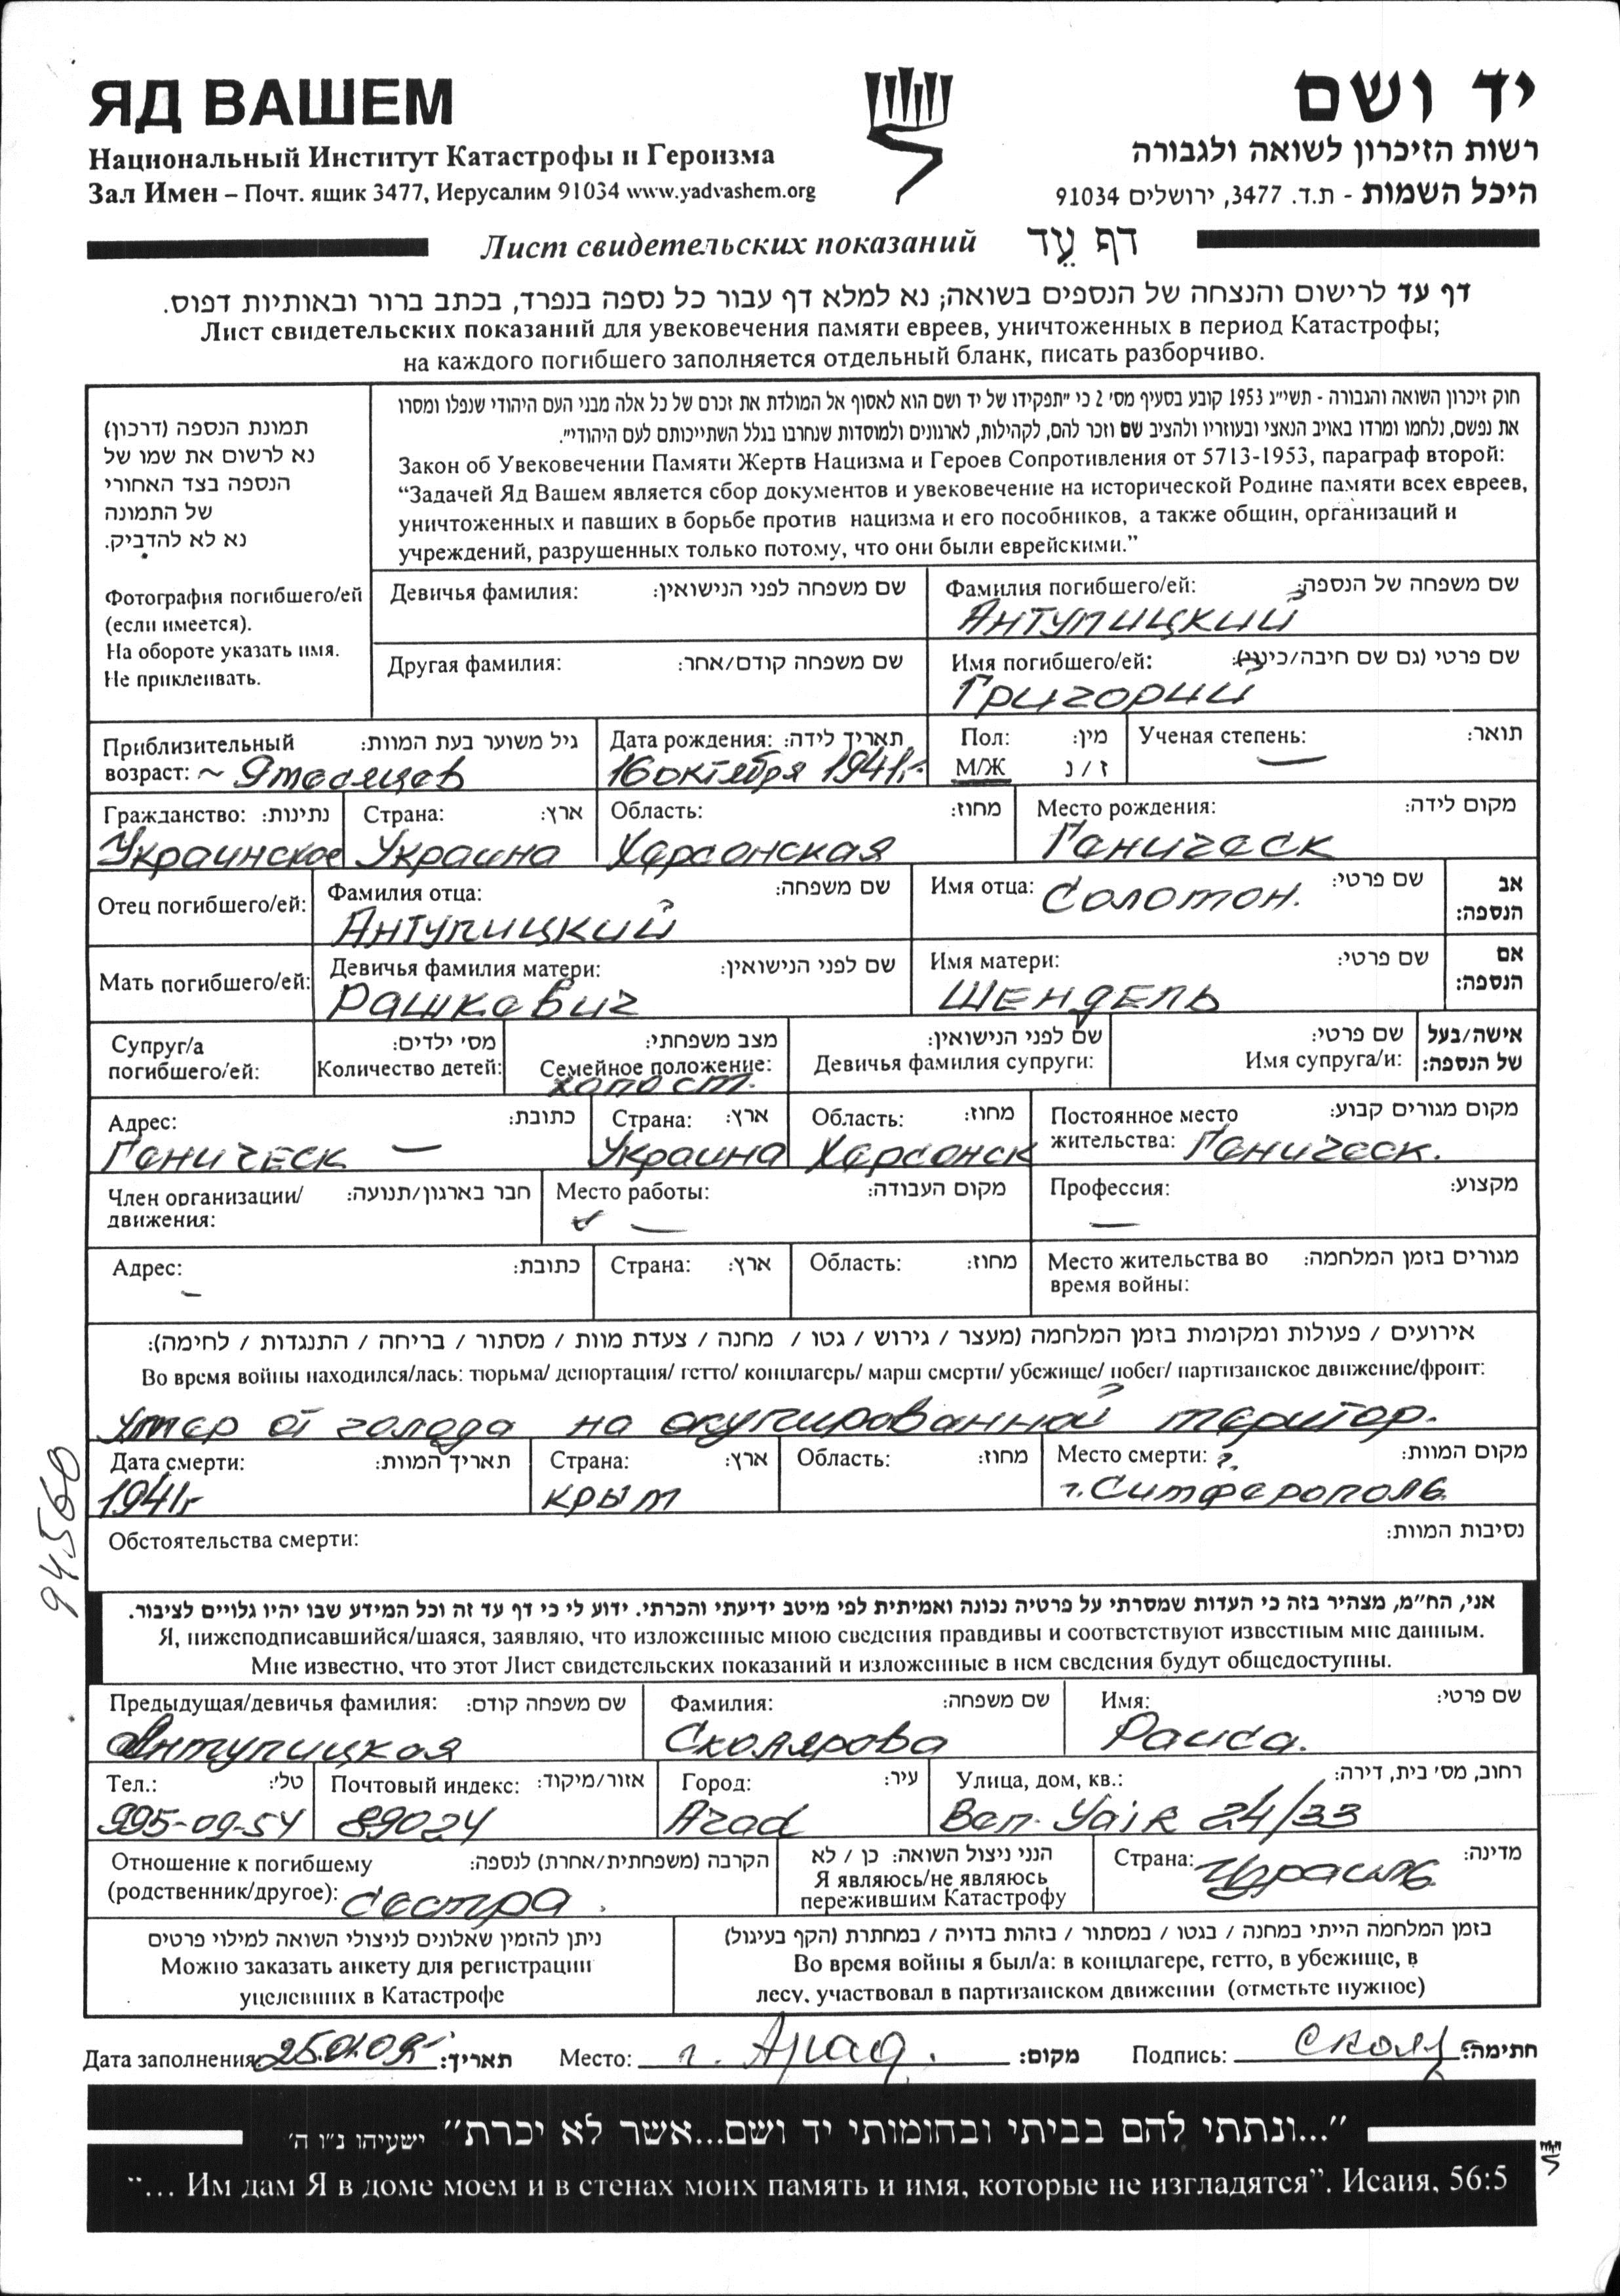 ЯД ВАШЕМ
יד ושם
Национальный Институт Катастрофы и Героизма
רשות הזיכרון לשואה ולגבורה
Зал Имен – Почт. ящик 3477, Иерусалим 91034 www.yadvashem.org
היכל השמות - ת.ד. 3477, ירושלים 91034
Лист свидетельских показаний דף עֵד
דף עד לרישום והנצחה של הנספים בשואה; נא למלא דף עבור כל נספה בנפרד, בכתב ברור ובאותיות דפוס.
Лист свидетельских показаний для увековечения памяти евреев, уничтоженных в период Катастрофы;
на каждого погибшего заполняется отдельный бланк, писать разборчиво.
תמונת הנספה (דרכון)
נא לרשום את שמו של
הנספה בצד האחורי
של התמונה
נא לא להדביק.
Фотография погибшего/ей
(если имеется).
На обороте указать имя.
Не приклеивать.
חוק זיכרון השואה והגבורה - תשי"ג 1953 קובע בסעיף מס' 2 כי "תפקידו של יד ושם הוא לאסוף אל המולדת את זכרם של כל אלה מבני העם היהודי שנפלו ומסרו
את נפשם, נלחמו ומרדו באויב הנאצי ובעוזריו ולהציב שם וזכר להם, לקהילות, לארגונים ולמוסדות שנחרבו בגלל השתייכותם לעם היהודי".
Закон об Увековечении Памяти Жертв Нацизма и Героев Сопротивления от 5713-1953, параграф второй:
“Задачей Яд Вашем является сбор документов и увековечение на исторической Родине памяти всех евреев,
уничтоженных и павших в борьбе против нацизма и его пособников, а также общин, организаций и
учреждений, разрушенных только потому, что они были еврейскими.”
Девичья фамилия: שם משפחה לפני הנישואין:
Фамилия погибшего/ей: שם משפחה של הנספה:
Антупицкий
Другая фамилия: שם משפחה קודם/אחר:
Имя погибшего/ей: שם פרטי (גם שם חיבה/כינוי):
Григорий
Приблизительный возраст: גיל משוער בעת המוות:
~ 9 месяцев
Дата рождения: תאריך לידה:
16 октября 1941г.
Пол: מין:
М/Ж ז / נ
Ученая степень: תואר:
—
Гражданство: נתינות:
Украинское
Страна: ארץ:
Украина
Область: מחוז:
Херсонская
Место рождения: מקום לידה:
Геническ
Отец погибшего/ей:
Фамилия отца: שם משפחה:
Антупицкий
Имя отца: שם פרטי:
Соломон.
אב הנספה:
Мать погибшего/ей:
Девичья фамилия матери: שם לפני הנישואין:
Рашкевич
Имя матери: שם פרטי:
Шендель
אם הנספה:
Супруг/а погибшего/ей:
מס' ילדים:
Количество детей:
מצב משפחתי:
Семейное положение:
холост.
שם לפני הנישואין:
Девичья фамилия супруги:
שם פרטי:
Имя супруга/и:
אישה/בעל של הנספה:
Адрес: כתובת:
Геническ —
Страна: ארץ:
Украина
Область: מחוז:
Херсонск
Постоянное место жительства: מקום מגורים קבוע:
Геническ.
Член организации/ движения: חבר בארגון/תנועה:
Место работы: מקום העבודה:
—
Профессия: מקצוע:
—
Адрес: כתובת:
–
Страна: ארץ:
Область: מחוז:
Место жительства во время войны: מגורים בזמן המלחמה:
אירועים / פעולות ומקומות בזמן המלחמה (מעצר / גירוש / גטו / מחנה / צעדת מוות / מסתור / בריחה / התנגדות / לחימה):
Во время войны находился/лась: тюрьма/ депортация/ гетто/ концлагерь/ марш смерти/ убежище/ побег/ партизанское движение/фронт:
Умер от голода на окупированной територ.
Дата смерти: תאריך המוות:
1941г
Страна: ארץ:
Крым
Область: מחוז:
Место смерти: מקום המוות:
г. Симферополь
Обстоятельства смерти: נסיבות המוות:
94560
אני, הח"מ, מצהיר בזה כי העדות שמסרתי על פרטיה נכונה ואמיתית לפי מיטב ידיעתי והכרתי. ידוע לי כי דף עד זה וכל המידע שבו יהיו גלויים לציבור.
Я, нижеподписавшийся/шаяся, заявляю, что изложенные мною сведения правдивы и соответствуют известным мне данным.
Мне известно, что этот Лист свидетельских показаний и изложенные в нем сведения будут общедоступны.
Предыдущая/девичья фамилия: שם משפחה קודם:
Антупицкая
Фамилия: שם משפחה:
Сколярова
Имя: שם פרטי:
Раиса.
Тел.: טל':
995-09-54
Почтовый индекс: אזור/מיקוד:
89024
Город: עיר:
Arad
Улица, дом, кв.: רחוב, מס' בית, דירה:
Ben-Yair 24/33
Отношение к погибшему (родственник/другое): הקרבה (משפחתית/אחרת) לנספה:
сестра.
הנני ניצול השואה: כן / לא
Я являюсь/не являюсь
пережившим Катастрофу
Страна: מדינה:
Израиль
ניתן להזמין שאלונים לניצולי השואה למילוי פרטים
Можно заказать анкету для регистрации
уцелевших в Катастрофе
בזמן המלחמה הייתי במחנה / בגטו / במסתור / בזהות בדויה / במחתרת (הקף בעיגול)
Во время войны я был/а: в концлагере, гетто, в убежище, в
лесу, участвовал в партизанском движении (отметьте нужное)
Дата заполнения: 25.01.09г. תאריך: Место: г. Арад. מקום: Подпись: Скол חתימה:
"...ונתתי להם בביתי ובחומותי יד ושם...אשר לא יכרת" ישעיהו נ"ו ה'
“... Им дам Я в доме моем и в стенах моих память и имя, которые не изгладятся”. Исаия, 56:5